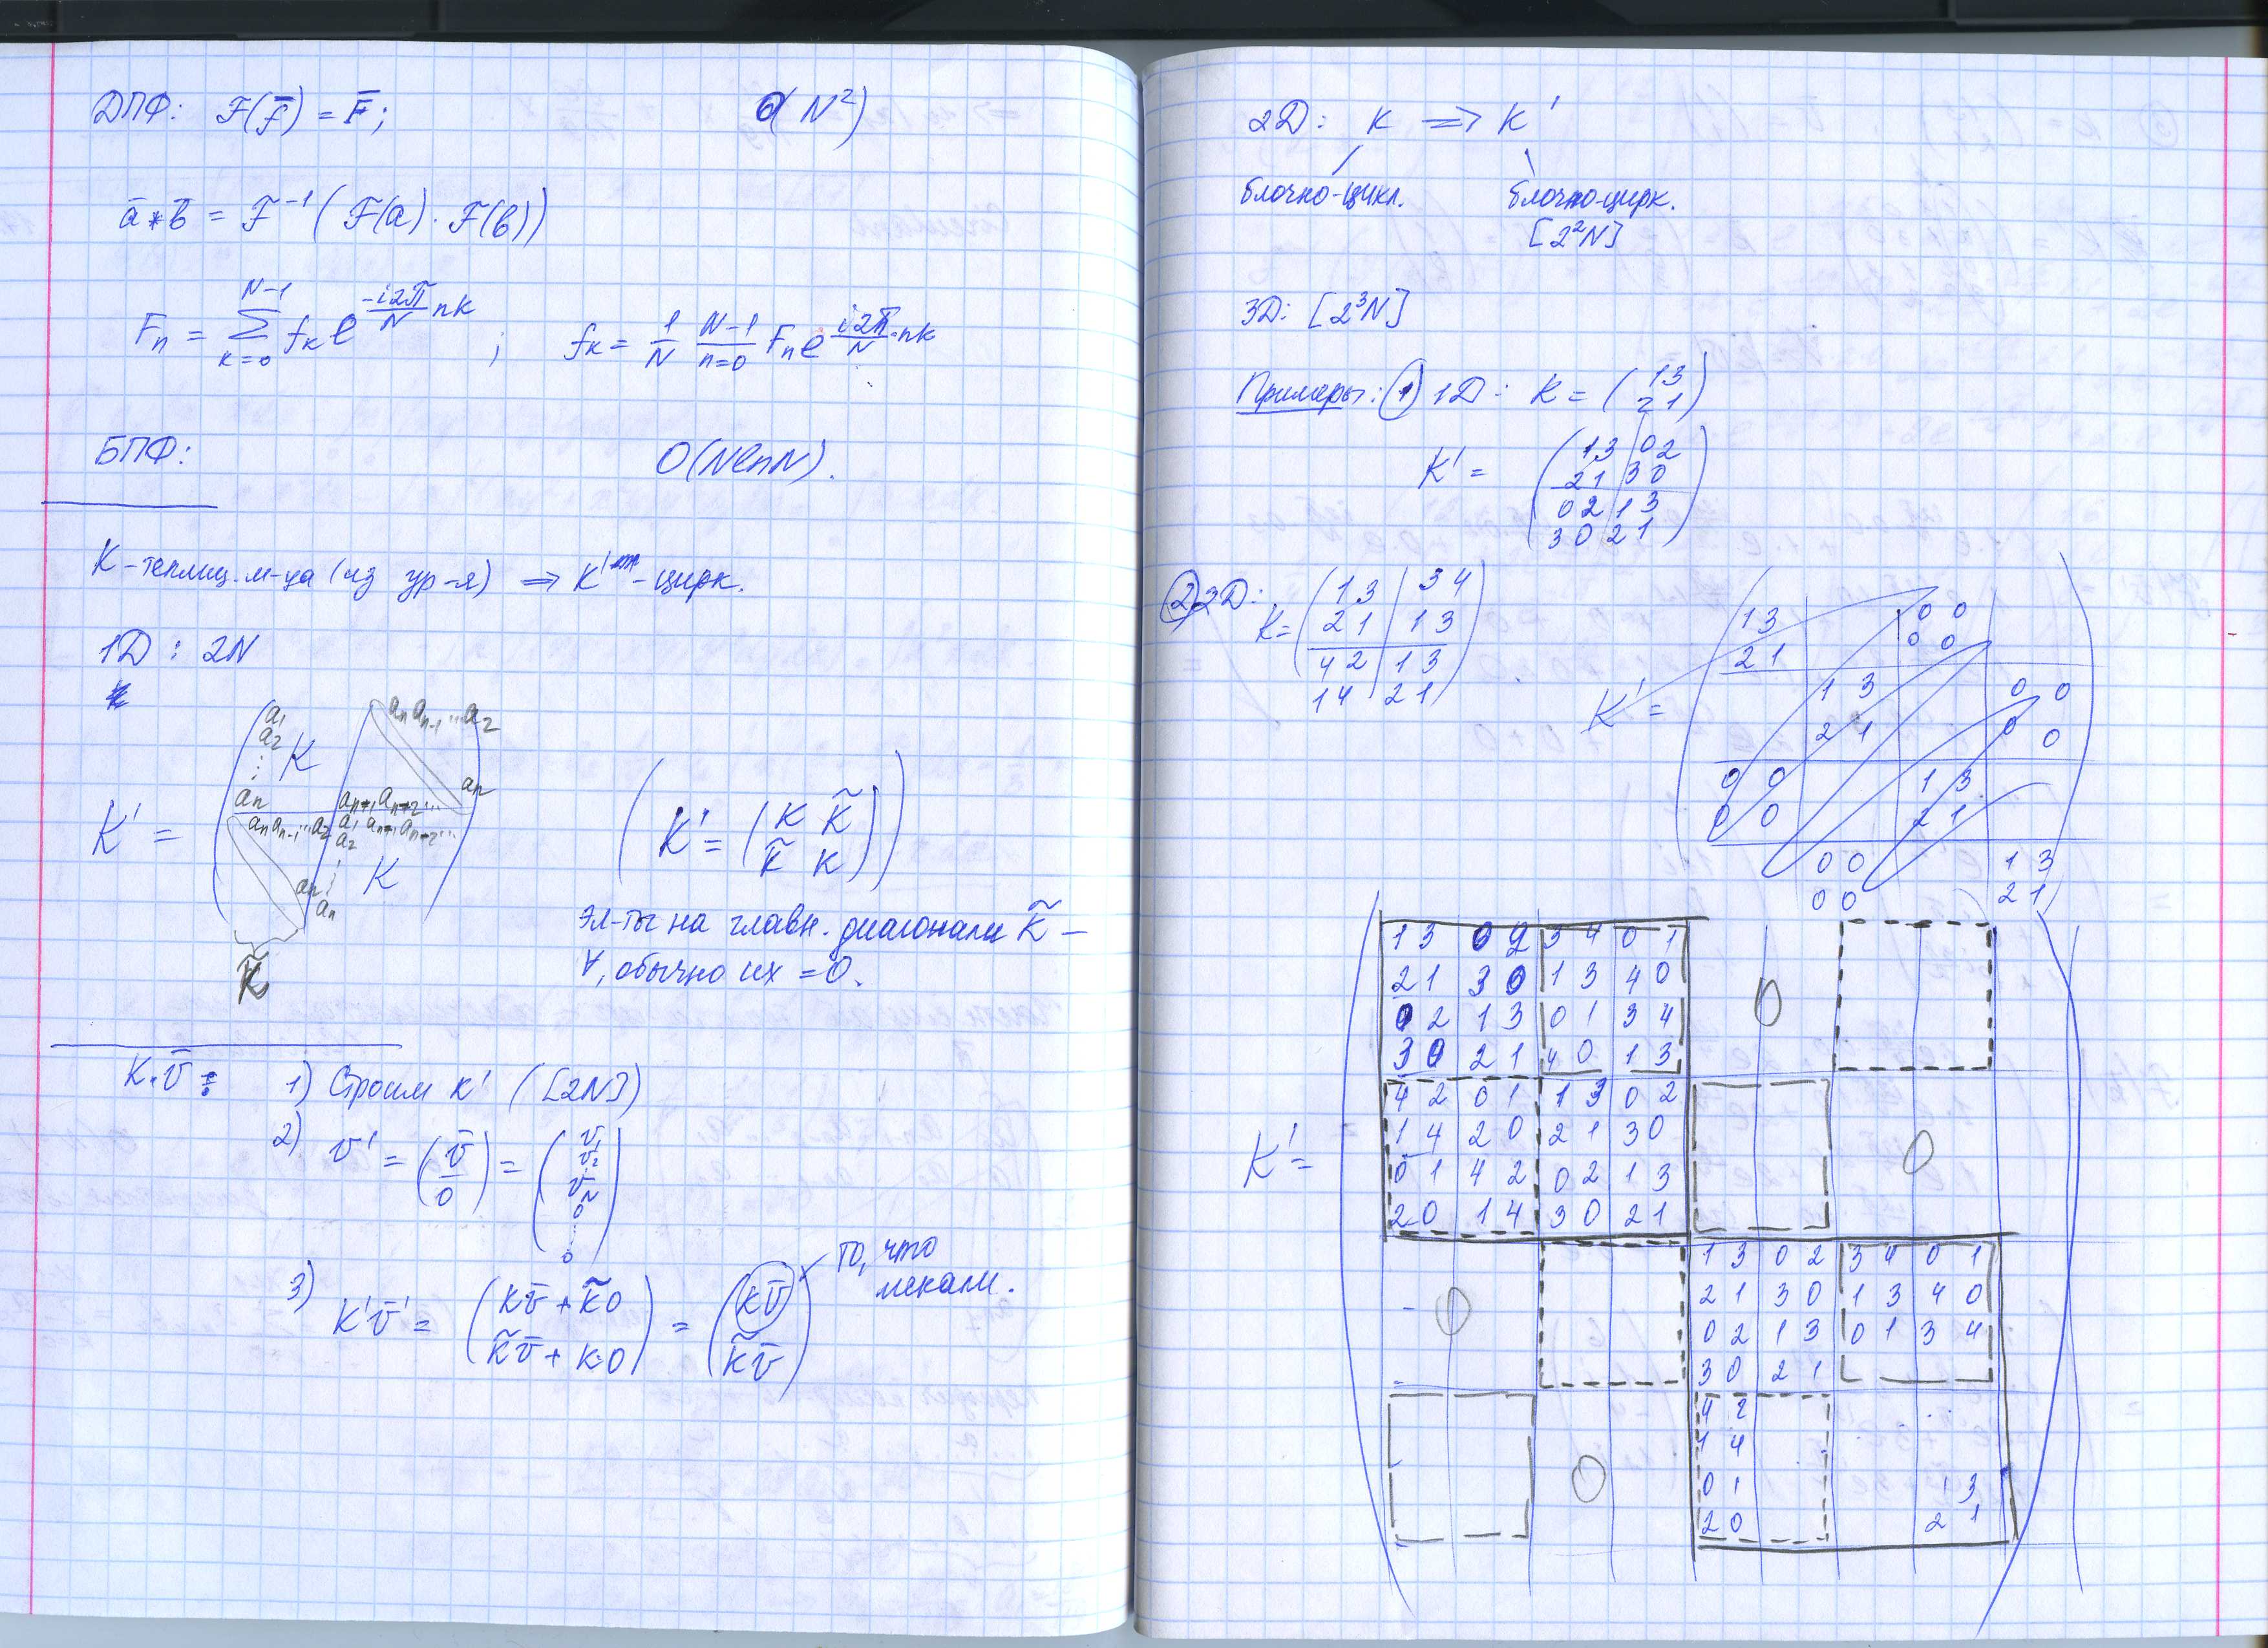 ДПФ: F(f̄) = F̄; O(N²)
ā * b̄ = F⁻¹(F(a)·F(b))
Fₙ = Σ_{k=0}^{N-1} fₖ e^{-i2π/N nk} ; fₖ = 1/N N-1/n=0 Fₙ e^{i2π/N·nk}
БПФ: O(NlnN).
K-теплиц. м-ца (из ур-я) ⇒ K' - цирк.
1D : 2N
K' =
a₁
a₂
⋮ K
aₙ
aₙ aₙ₋₁ ... a₂
aₙ
aₙ₊₁ aₙ₊₂ ...
aₙ aₙ₋₁ ... a₂ a₁ aₙ₊₁ aₙ₊₂ ...
a₂
⋮ K
aₙ
aₙ
K̃
(K' = (K K̃
K̃ K))
эл-ты на главн. диагонали K̃ –
∀, обычно их = 0.
K·v̄ :
1) Строим K' ([2N])
2) v' = (v̄/0) = (v₁ v₂ ⋮ 0 ⋮ 0)
3) K'v̄' = (Kv̄ + K̃0
K̃v̄ + K·0) = (Kv̄
K̃v̄)
то, что
искали.
2D: K ⇒ K'
блочно-цикл. блочно-цирк.
[2²N]
3D: [2³N]
Примеры: ① 1D: K = (1 3
2 1)
K' =
1 3 0 2
2 1 3 0
0 2 1 3
3 0 2 1
② 2D:
K =
1 3 | 3 4
2 1 | 1 3
4 2 | 1 3
1 4 | 2 1
K' =
1 3 0 0
2 1 0 0
1 3 0 0
2 1 0 0
0 0 1 3
0 0 2 1
0 0 1 3
0 0 2 1
K' =
1 3 0 2 3 4 0 1
2 1 3 0 1 3 4 0 0
0 2 1 3 0 1 3 4
3 0 2 1 4 0 1 3
4 2 0 1 1 3 0 2
1 4 2 0 2 1 3 0 0
0 1 4 2 0 2 1 3
2 0 1 4 3 0 2 1
1 3 0 2 3 4 0 1
0 2 1 3 0 1 3 4 0
0 2 1 3 0 1 3 4
3 0 2 1
4 2
1 4
0 0 1 1 3
2 0 2 1